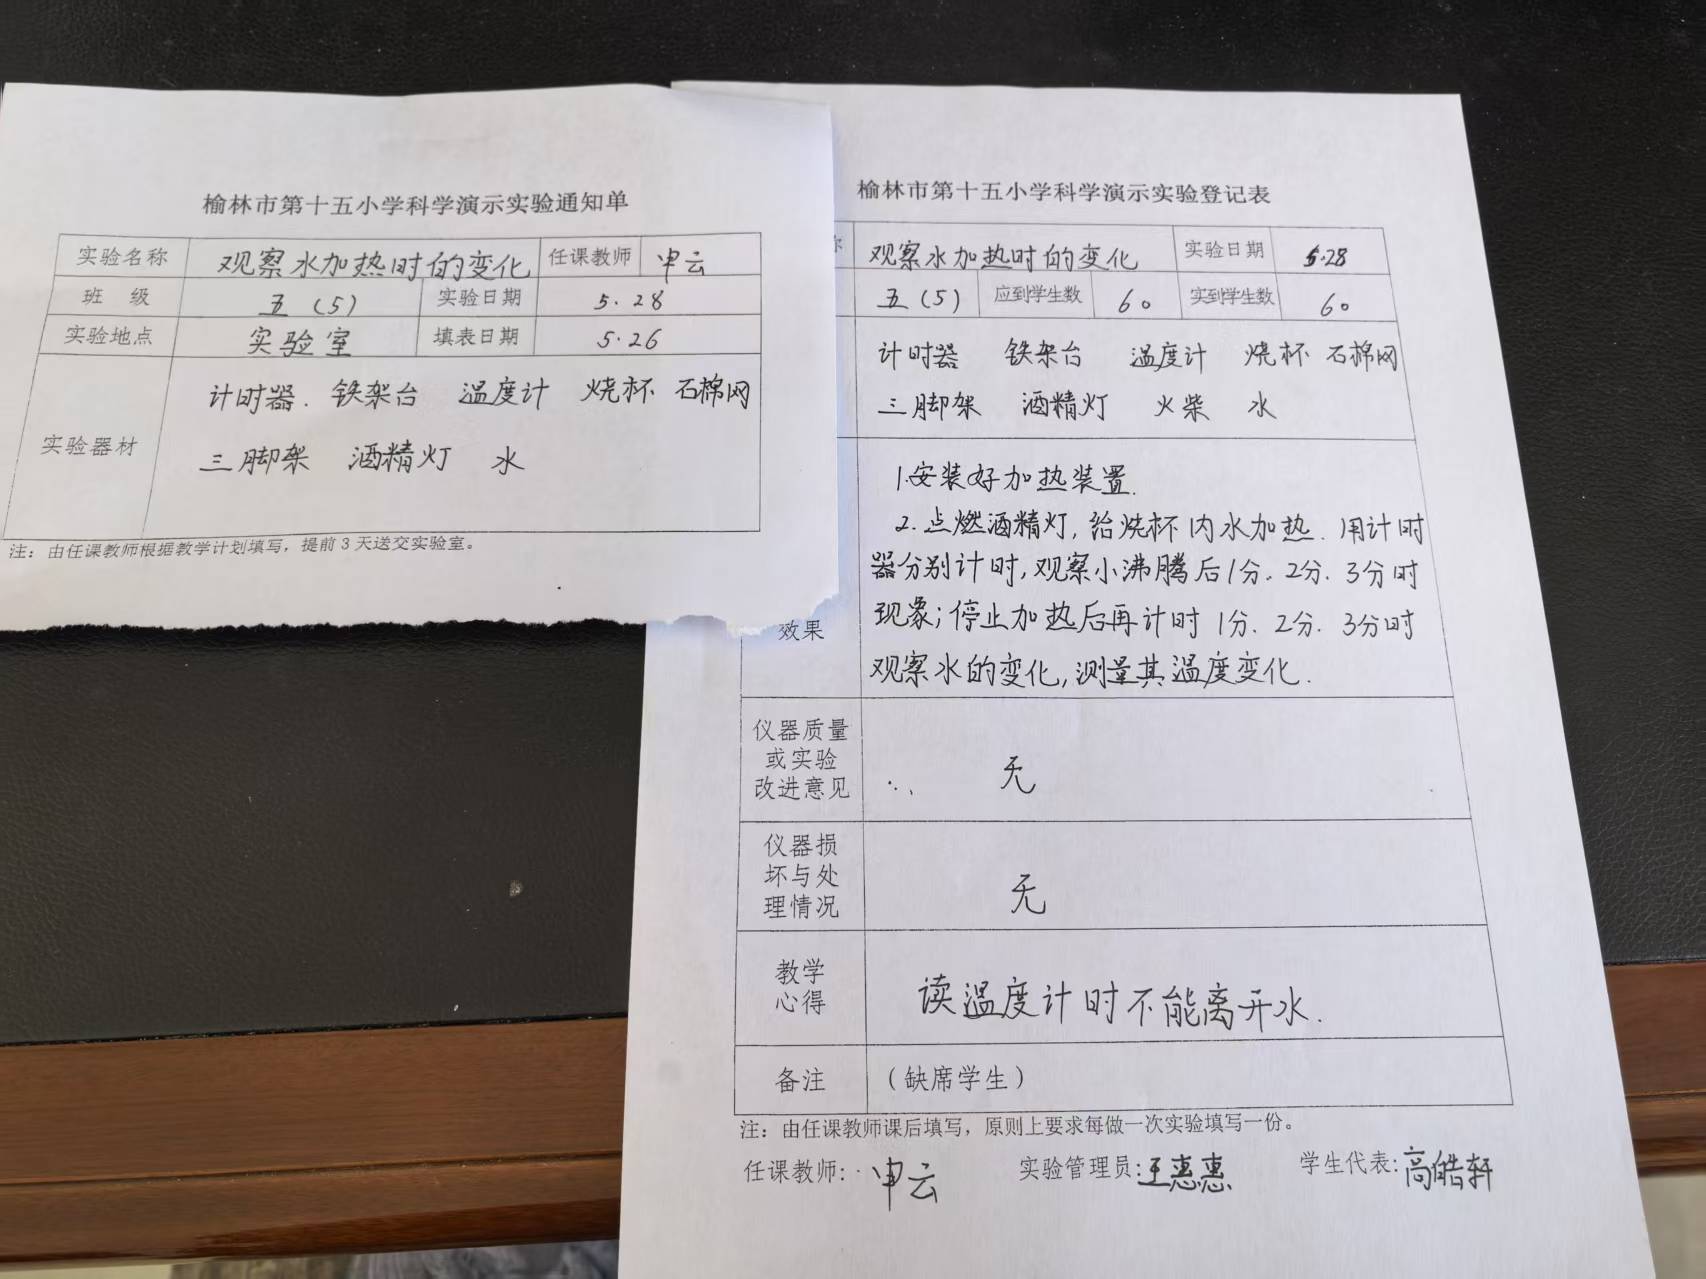 榆林市第十五小学科学演示实验通知单
实验名称 观察水加热时的变化 任课教师 申云
班 级 五(5) 实验日期 5.28
实验地点 实验室 填表日期 5.26
实验器材
计时器. 铁架台 温度计 烧杯 石棉网
三脚架 酒精灯 水
注：由任课教师根据教学计划填写，提前3天送交实验室。
榆林市第十五小学科学演示实验登记表
观察水加热时的变化 实验日期 5.28
五(5) 应到学生数 60 实到学生数 60
计时器 铁架台 温度计 烧杯 石棉网
三脚架 酒精灯 火柴 水
1.安装好加热装置.
2.点燃酒精灯,给烧杯内水加热.用计时
器分别计时,观察小沸腾后1分.2分.3分时
现象;停止加热后再计时1分.2分.3分时
观察水的变化,测量其温度变化.
效果
仪器质量
或实验
改进意见
无
仪器损
坏与处
理情况
无
教学
心得
读温度计时不能离开水.
备注 （缺席学生）
注：由任课教师课后填写，原则上要求每做一次实验填写一份。
任课教师: 申云 实验管理员:王惠惠 学生代表:高皓轩